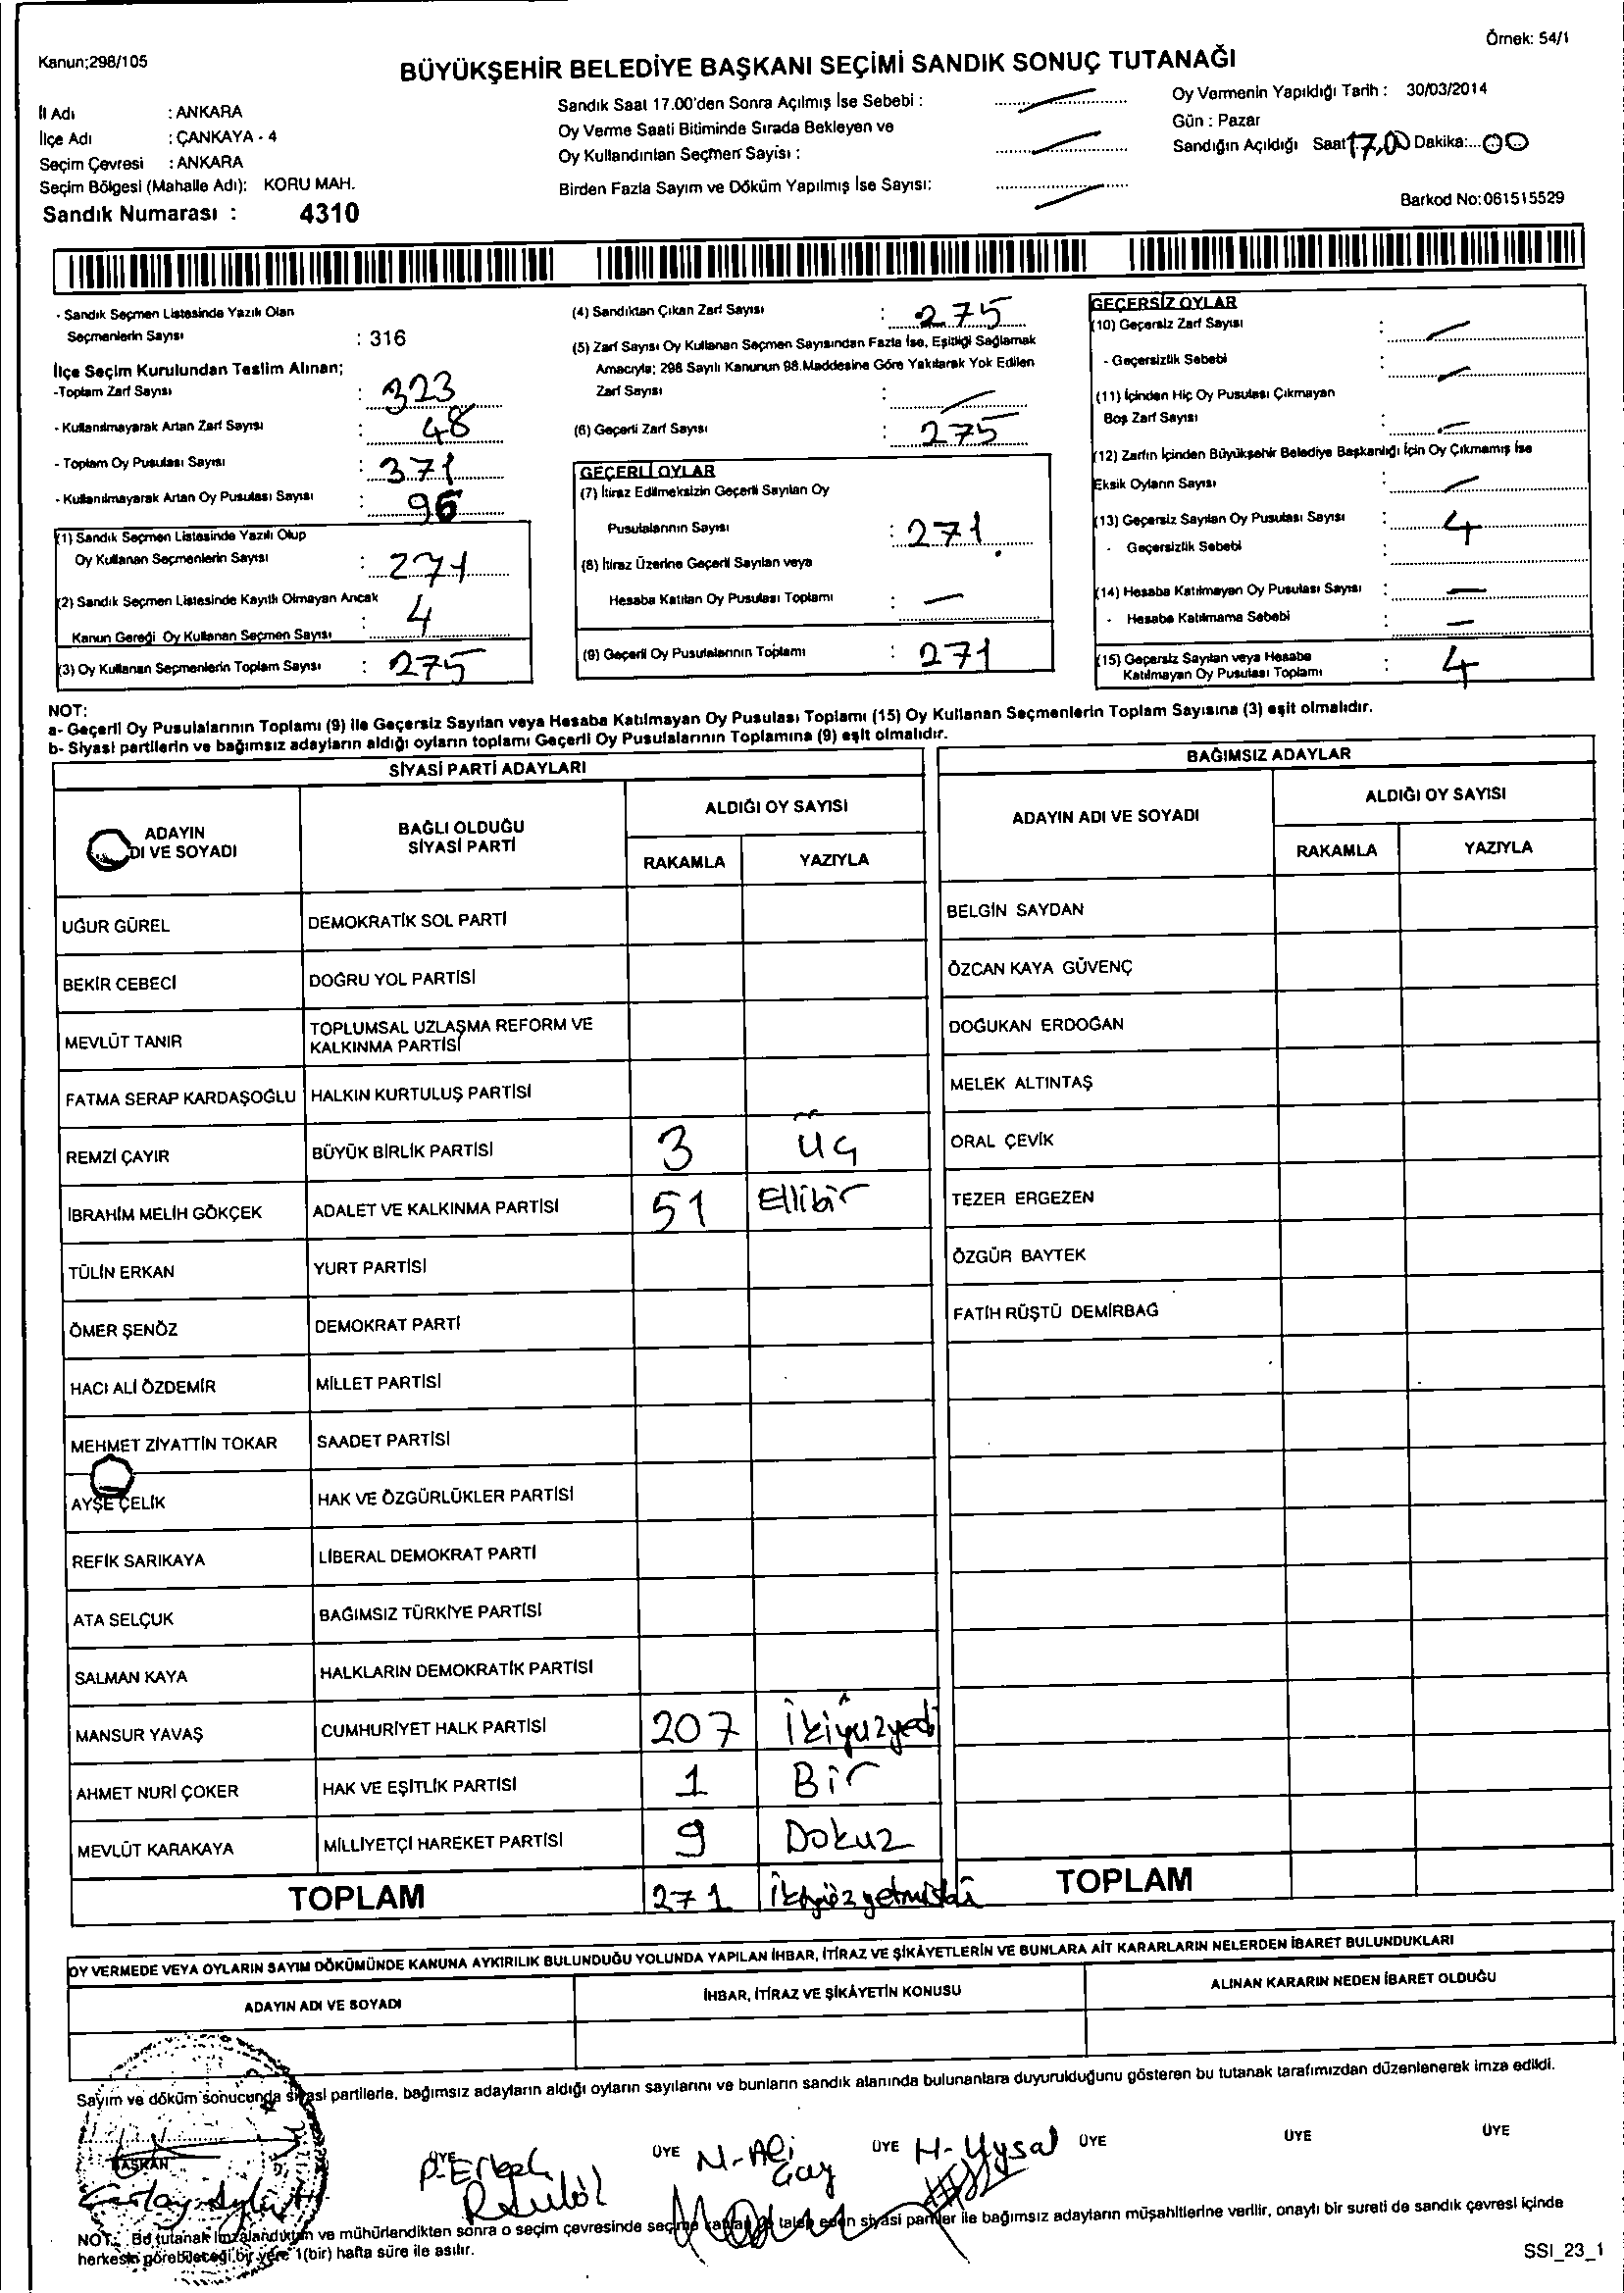 Örnek: 54/1
Kanun;298/105
BÜYÜKŞEHİR BELEDİYE BAŞKANI SEÇİMİ SANDIK SONUÇ TUTANAĞI
İl Adı : ANKARA
İlçe Adı : ÇANKAYA - 4
Seçim Çevresi : ANKARA
Seçim Bölgesi (Mahalle Adı): KORU MAH.
Sandık Numarası : 4310
Sandık Saat 17.00'den Sonra Açılmış İse Sebebi :
Oy Verme Saati Bitiminde Sırada Bekleyen ve
Oy Kullandırılan Seçmen Sayısı :
Birden Fazla Sayım ve Döküm Yapılmış İse Sayısı:
Oy Vermenin Yapıldığı Tarih : 30/03/2014
Gün : Pazar
Sandığın Açıldığı Saat 17,00 Dakika:...00
Barkod No:061515529
- Sandık Seçmen Listesinde Yazılı Olan
Seçmenlerin Sayısı : 316
İlçe Seçim Kurulundan Teslim Alınan;
-Toplam Zarf Sayısı : 323
- Kullanılmayarak Artan Zarf Sayısı : 48
- Toplam Oy Pusulası Sayısı : 371
- Kullanılmayarak Artan Oy Pusulası Sayısı : 96
(1) Sandık Seçmen Listesinde Yazılı Olup
Oy Kullanan Seçmenlerin Sayısı : 271
(2) Sandık Seçmen Listesinde Kayıtlı Olmayan Ancak
Kanun Gereği Oy Kullanan Seçmen Sayısı : 4
(3) Oy Kullanan Seçmenlerin Toplam Sayısı : 275
(4) Sandıktan Çıkan Zarf Sayısı : 275
(5) Zarf Sayısı Oy Kullanan Seçmen Sayısından Fazla İse, Eşitliği Sağlamak
Amacıyla; 298 Sayılı Kanunun 98.Maddesine Göre Yakılarak Yok Edilen
Zarf Sayısı :
(6) Geçerli Zarf Sayısı : 275
GEÇERLİ OYLAR
(7) İtiraz Edilmeksizin Geçerli Sayılan Oy
Pusulalarının Sayısı : 271
(8) İtiraz Üzerine Geçerli Sayılan veya
Hesaba Katılan Oy Pusulası Toplamı : —
(9) Geçerli Oy Pusulalarının Toplamı : 271
GEÇERSİZ OYLAR
(10) Geçersiz Zarf Sayısı :
- Geçersizlik Sebebi :
(11) İçinden Hiç Oy Pusulası Çıkmayan
Boş Zarf Sayısı :
(12) Zarfın İçinden Büyükşehir Belediye Başkanlığı İçin Oy Çıkmamış İse
Eksik Oyların Sayısı :
(13) Geçersiz Sayılan Oy Pusulası Sayısı : 4
- Geçersizlik Sebebi :
(14) Hesaba Katılmayan Oy Pusulası Sayısı : —
- Hesaba Katılmama Sebebi : —
(15) Geçersiz Sayılan veya Hesaba
Katılmayan Oy Pusulası Toplamı : 4
NOT:
a- Geçerli Oy Pusulalarının Toplamı (9) ile Geçersiz Sayılan veya Hesaba Katılmayan Oy Pusulası Toplamı (15) Oy Kullanan Seçmenlerin Toplam Sayısına (3) eşit olmalıdır.
b- Siyasi partilerin ve bağımsız adayların aldığı oyların toplamı Geçerli Oy Pusulalarının Toplamına (9) eşit olmalıdır.
SİYASİ PARTİ ADAYLARI
ADAYIN
DI VE SOYADI
BAĞLI OLDUĞU
SİYASİ PARTİ
ALDIĞI OY SAYISI
RAKAMLA YAZIYLA
UĞUR GÜREL DEMOKRATİK SOL PARTİ
BEKİR CEBECİ DOĞRU YOL PARTİSİ
MEVLÜT TANIR TOPLUMSAL UZLAŞMA REFORM VE
KALKINMA PARTİSİ
FATMA SERAP KARDAŞOĞLU HALKIN KURTULUŞ PARTİSİ
REMZİ ÇAYIR BÜYÜK BİRLİK PARTİSİ 3 üç
İBRAHİM MELİH GÖKÇEK ADALET VE KALKINMA PARTİSİ 51 Ellibir
TÜLİN ERKAN YURT PARTİSİ
ÖMER ŞENÖZ DEMOKRAT PARTİ
HACI ALİ ÖZDEMİR MİLLET PARTİSİ
MEHMET ZİYATTİN TOKAR SAADET PARTİSİ
AYŞE ÇELİK HAK VE ÖZGÜRLÜKLER PARTİSİ
REFİK SARIKAYA LİBERAL DEMOKRAT PARTİ
ATA SELÇUK BAĞIMSIZ TÜRKİYE PARTİSİ
SALMAN KAYA HALKLARIN DEMOKRATİK PARTİSİ
MANSUR YAVAŞ CUMHURİYET HALK PARTİSİ 207 İkiyüzyedi
AHMET NURİ ÇOKER HAK VE EŞİTLİK PARTİSİ 1 Bir
MEVLÜT KARAKAYA MİLLİYETÇİ HAREKET PARTİSİ 9 Dokuz
TOPLAM 271
BAĞIMSIZ ADAYLAR
ADAYIN ADI VE SOYADI
ALDIĞI OY SAYISI
RAKAMLA YAZIYLA
BELGİN SAYDAN
ÖZCAN KAYA GÜVENÇ
DOĞUKAN ERDOĞAN
MELEK ALTINTAŞ
ORAL ÇEVİK
TEZER ERGEZEN
ÖZGÜR BAYTEK
FATİH RÜŞTÜ DEMİRBAĞ
TOPLAM
OY VERMEDE VEYA OYLARIN SAYIM DÖKÜMÜNDE KANUNA AYKIRILIK BULUNDUĞU YOLUNDA YAPILAN İHBAR, İTİRAZ VE ŞİKÂYETLERİN VE BUNLARA AİT KARARLARIN NELERDEN İBARET BULUNDUKLARI
ADAYIN ADI VE SOYADI
İHBAR, İTİRAZ VE ŞİKÂYETİN KONUSU
ALINAN KARARIN NEDEN İBARET OLDUĞU
Sayım ve döküm sonucunda siyasi partilerle, bağımsız adayların aldığı oyların sayılarını ve bunların sandık alanında bulunanlara duyurulduğunu gösteren bu tutanak tarafımızdan düzenlenerek imza edildi.
BAŞKAN ÜYE ÜYE ÜYE ÜYE ÜYE ÜYE
H. Uysal
NOT: Bu tutanak imzalandıktan ve mühürlendikten sonra o seçim çevresinde seçime katılan ve talep eden siyasi partiler ile bağımsız adayların müşahitlerine verilir, onaylı bir sureti de sandık çevresi içinde
herkesin görebileceği bir yere 1(bir) hafta süre ile asılır.
SSI_23_1